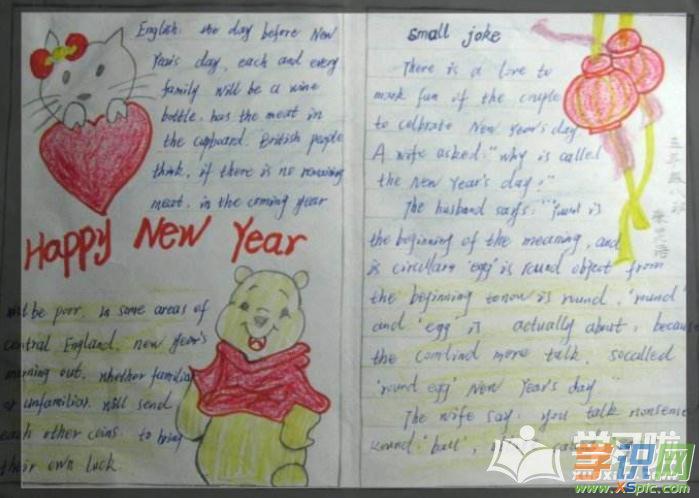 English: the day before New
Year's day, each and every
family will be a wine
bottle, has the meat in
the cupboard. British people
think, if there is no remaining
meat, in the coming year
Happy New Year
will be poor. in some areas of
central England, new year's
morning out, whether familiar
or unfamiliar, will send
each other coins, to bring
their own luck
Small joke
There is a love to
mark fun of the couple
to celbrate New Year's day
A wife asked: "why is called
the New Year's day?"
The husband says: " is
the beginning of the meaning, and
is circullary 'egg' is round object from
the beginning to now is round. 'round'
and 'egg' is actually about, because
the comlind more talk, socalled
'round egg' New Year's day
The wife say: you talk nonsense
round 'ball',
三年级八班
学习啦
学识网
www.XSpic.com